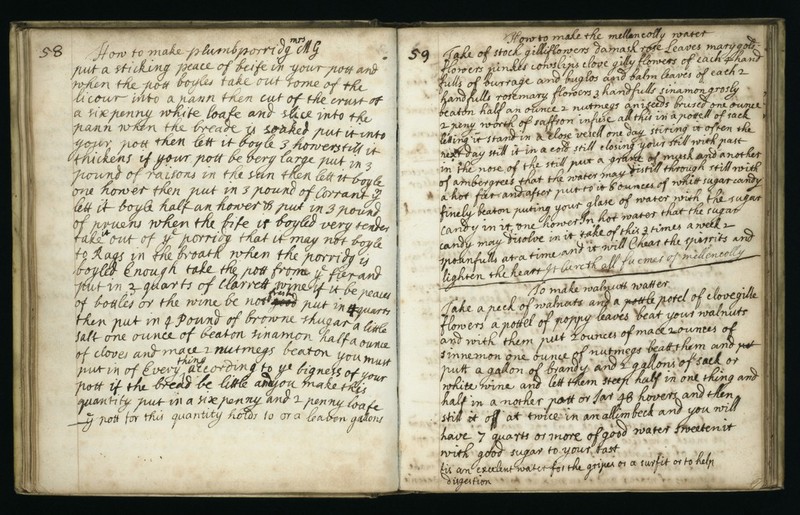 58
How to make plumbporridg mrs MG
put a sticking peace of beife in your pott and
when the pott boyles take out some of the
licour into a pann then cut of the crust of
a sixpenny white loafe and slice into the
pann when the breade is soaked put it into
your pott then lett it boyle 3 howers still it
thickens if your pott be very large put in 3
pound of raisons in the sun then lett it boyle
one hower then put in 3 pound of Corrants
lett it boyle half an hower & put in 3 pound
of pruens when the bife is boyled very tender
take it out of ye porridg that it may not boyle
to Rags in the broath when the porridg is
boyled Enough take the pott from ye fier and
put in 2 quarts of Clarrett wine if it be peaces
of bottles or the wine be not put in quarts
then put in 4 Pound of browne shugar a little
salt one ounce of beaton sinamon half a ounce
of cloves and mace 2 nutmegs beaton you must
put in of Every thing according to ye bigness of your
pott if the bread be little and you make this
quantity put in a sixpenny and 2 penny loafe
ye pott for this quantity holds 10 or a leaven gallons
59
How to make the mellencolly water
Take of stock gilliflowers damask rose Leaves marygold
flowers pinkes cowslips clove gilly flowers of each 4 hand
fulls of burrage and buglos and balm leaves of each 2
handfulls rosemary flowers 3 handfulls sinamon grosly
beaton half an ounce 2 nutmegs aniseeds brused one ounce
2 peny worth of saffron infuse all this in a pottell of sack
leting it stand in a close vesell one day stiring it often the
next day still it in a cold still closing your still with past
in the nose of the still put a graine of musk and another
of ambergrees that the water may distill through still with
a hot fier and after put to it 8 ounces of whitt sugar candy
finely beaton puting your glase of water with the sugar
candy in it one hower in hot water that the sugar
candy may disolve in it take of this 3 times a week 2
spoonfulls at a time and it will Chear the spirrits and
lighten the heart yt cureth all fuemes of mellencolly
To make walnutt watter
Take a peck of walnuts and a pottle potel of clovegille
flowers a pottel of poppy leaves beat your walnuts
and with them put 2 ounces of mace 2 ounces of
sinnemon one ounce of nutmegs beatt them and
putt a gallon of brandy and 2 gallons of sack or
white wine and let them steep half in one thing and
half in a nother pott or Jar 48 howers and then
still it off at twice in an allimbeck and you will
have 7 quarts or more of good water sweeten it
with good sugar to your tast
tis an excelent water for the gripes or a surfit or to help
digestion